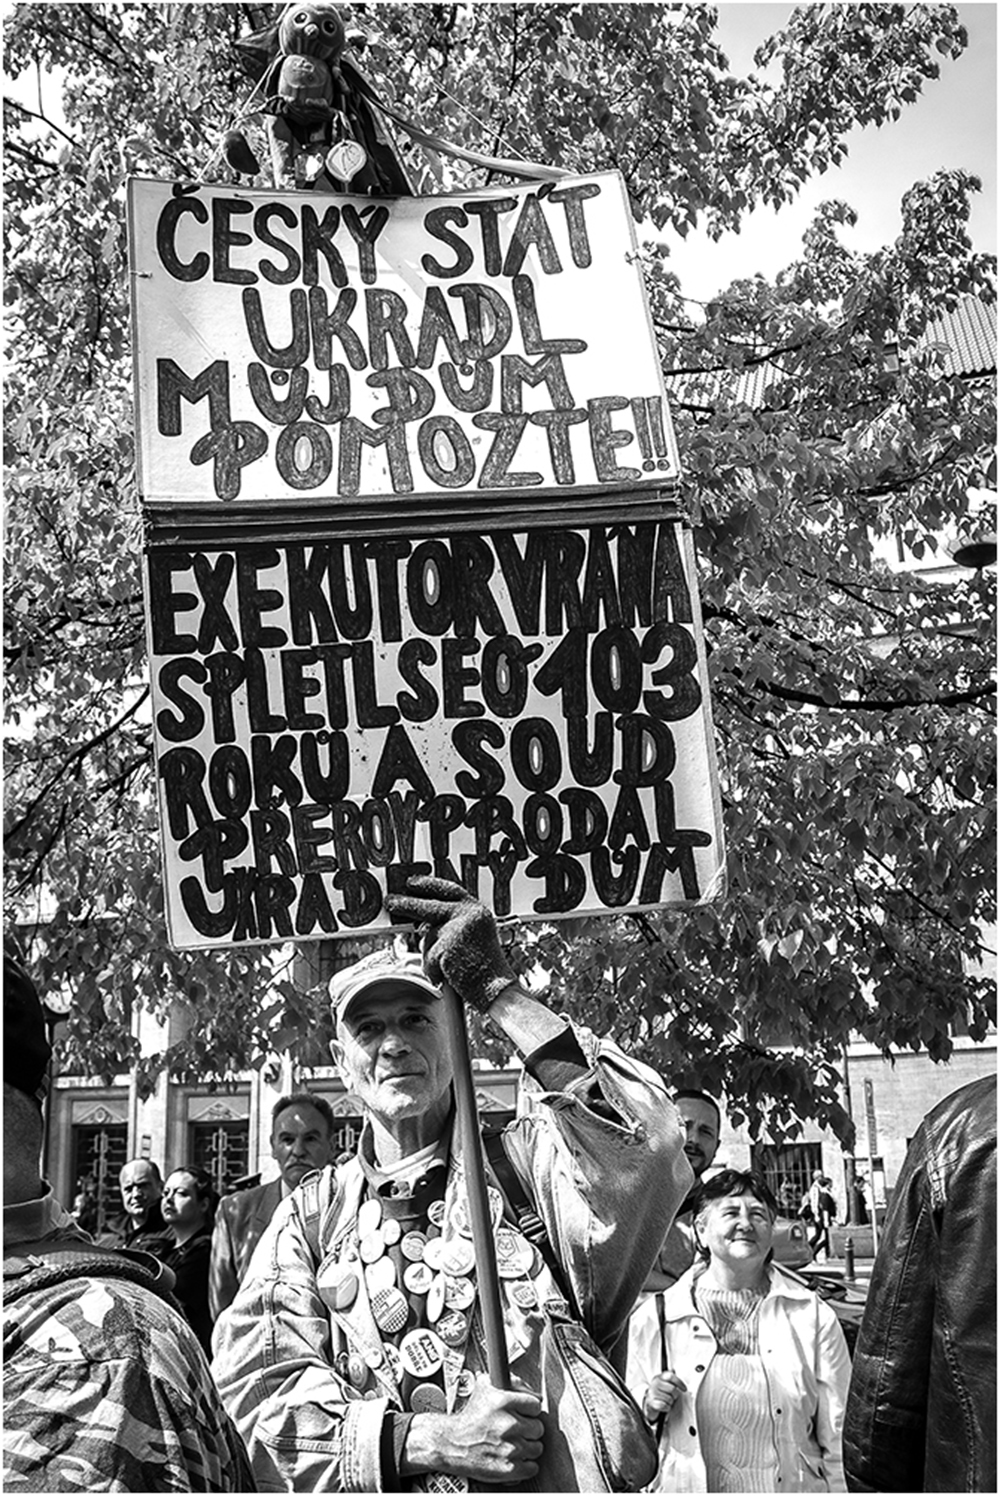 ČESKÝ STÁT
UKRADL
MŮJ DŮM
POMOZTE!!
EXEKUTOR VRÁNA
SPLETL SE O 103
ROKŮ A SOUD
PŘEROV PRODAL
UKRADENÝ DŮM